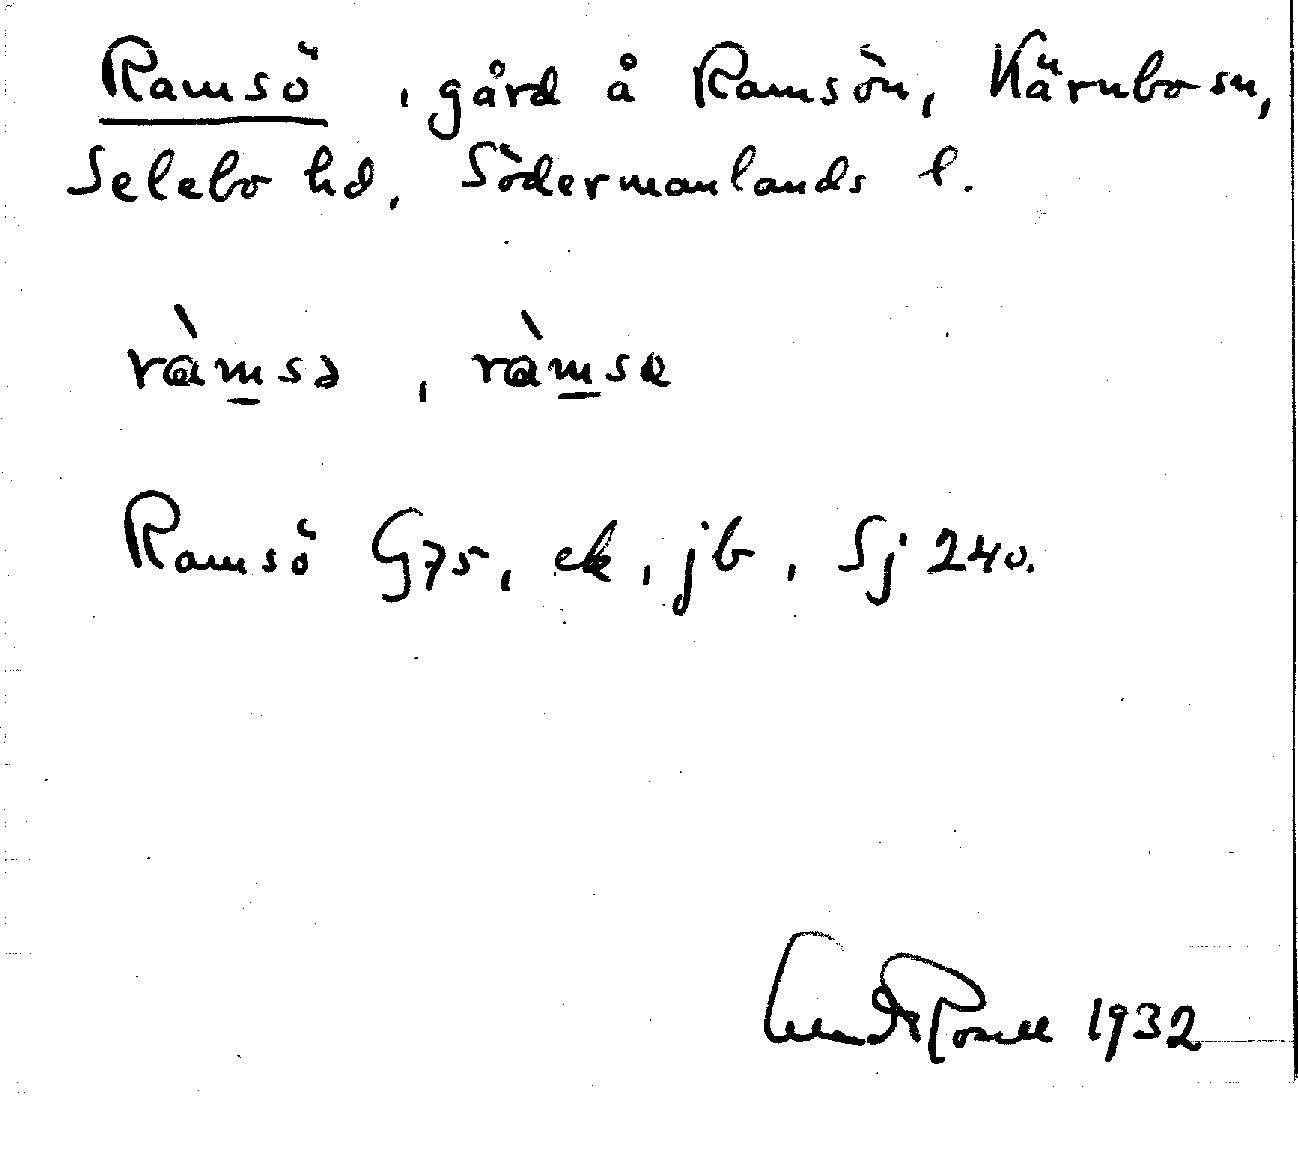 Ramsö, gård å Ramsön, Kärnbo sn,
Selebo hd, Södermanlands l.
ràmsə, ràmsæ
Ramsö G75, ek, jb, Sj 240.
1932